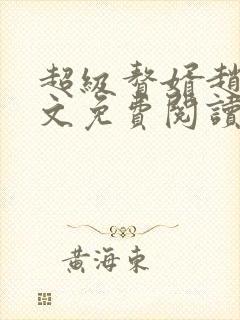 超級贅婿趙
文免費閱讀
黃海東